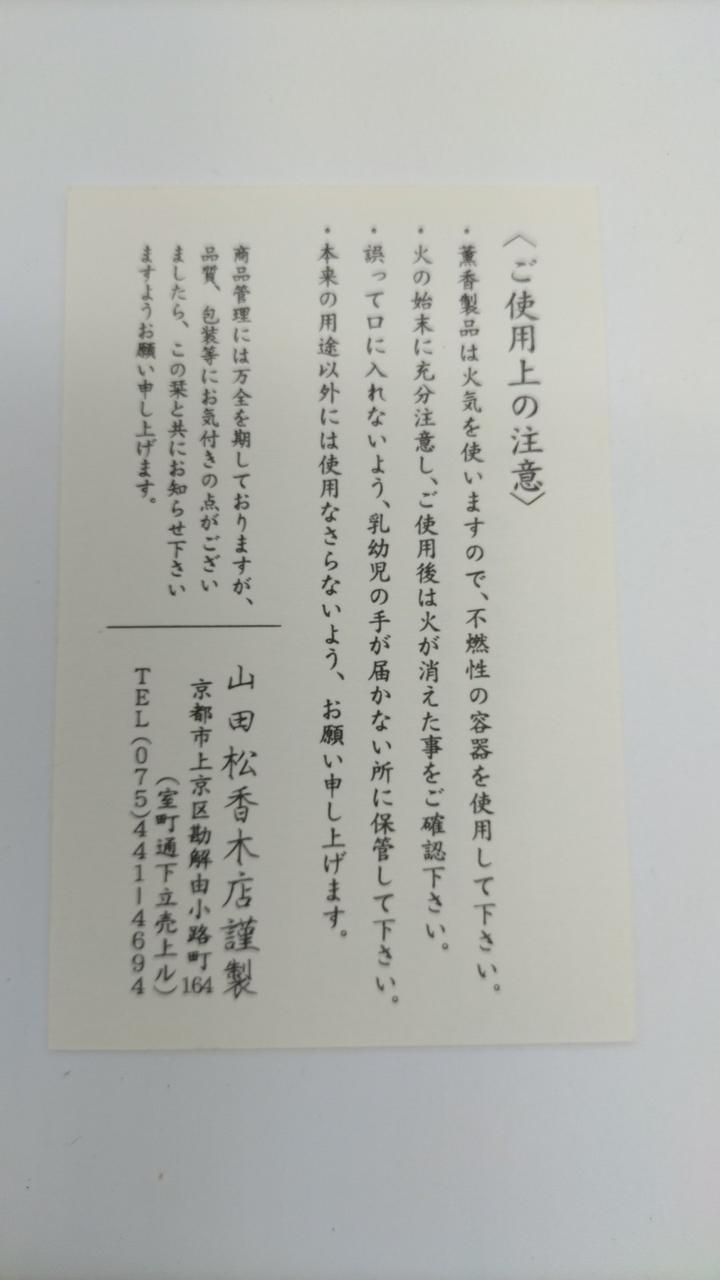 〈ご使用上の注意〉
・薫香製品は火気を使いますので、不燃性の容器を使用して下さい。
・火の始末に充分注意し、ご使用後は火が消えた事をご確認下さい。
・誤って口に入れないよう、乳幼児の手が届かない所に保管して下さい。
・本来の用途以外には使用なさらないよう、お願い申し上げます。
商品管理には万全を期しておりますが、
品質、包装等にお気付きの点がござい
ましたら、この栞と共にお知らせ下さい
ますようお願い申し上げます。
山田松香木店謹製
京都市上京区勘解由小路町164
(室町通下立売上ル)
TEL(075)441-4694